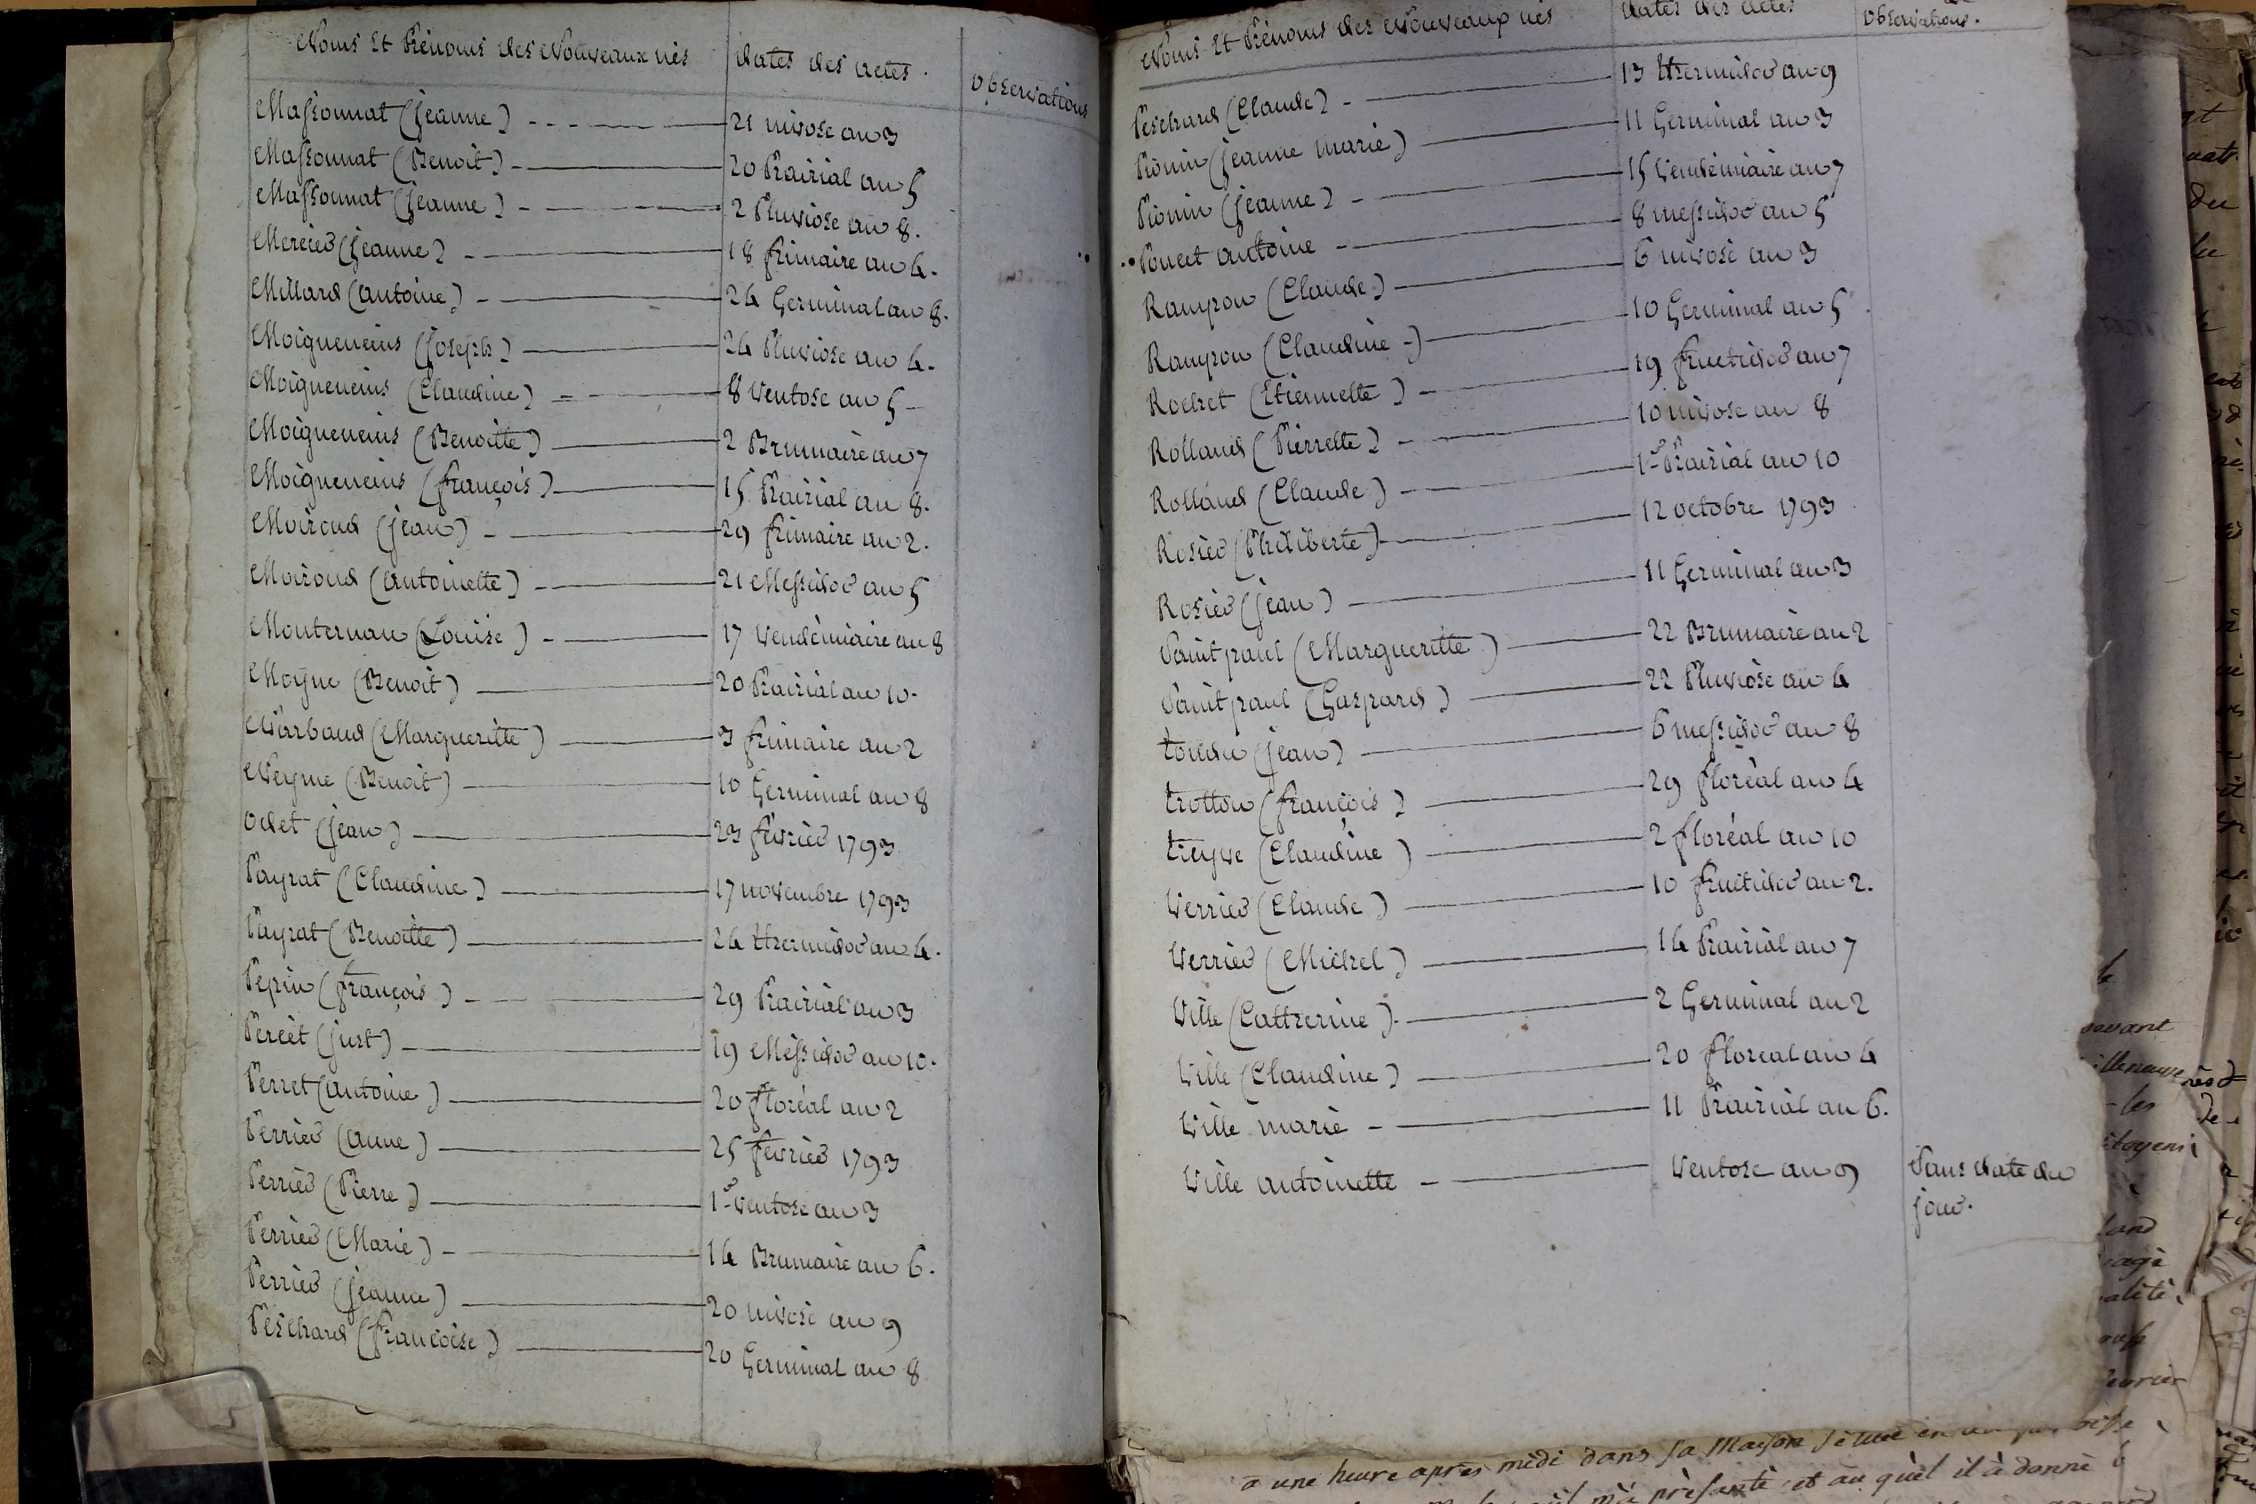 Noms Et Prénoms des Nouveaux nés dates des actes. observations
Massonnat (jeanne) 21 nivose an 3
Massonnat (Benoit) 20 Prairial an 5
Massonnat (jeanne) 2 Pluviose an 8.
Mercier (jeanne) 18 frimaire an 4.
Millard (antoine) 24 Germinal an 8.
Moigneneins (joseph) 24 Pluviose an 4.
Moigneneins (Claudine) 8 Ventose an 5
Moigneneins (Benoitte) 2 Brumaire an 7
Moigneneins (françois) 15 Prairial an 8.
Moiroud (jean) 29 frimaire an 2.
Moiroud (antoinette) 21 Messidor an 5
Monternau (Louise) 17 Vendémiaire an 8
Moyne (Benoit) 20 Prairial an 10.
Narbaud (Margueritte) 3 frimaire an 2
Neyme (Benoit) 10 Germinal an 8
odet (jean) 23 février 1793
Payrat (Claudine) 17 novembre 1793
Payrat (Benoitte) 24 thermidor an 4.
Pepin (françois) 29 Prairial an 3
Percet (just) 19 Messidor an 10.
Perret (antoine) 20 floréal an 2
Perrier (anne) 25 février 1793
Perrier (Pierre) 1er Ventose an 3
Perrier (Marie) 14 Brumaire an 6.
Perrier (jeanne) 20 nivose an 9
Peschard (françoise) 20 Germinal an 8
Noms Et Prénoms des Nouveaux nés dates des actes observations.
Peschard (Claude) 13 thermidor an 9
Pionin (jeanne marie) 11 Germinal an 3
Pionin (jeanne) 15 Vendémiaire an 7
Poncet antoine 8 messidor an 5
Rampon (Claude) 6 nivose an 3
Rampon (Claudine) 10 Germinal an 5
Rochet (Etiennette) 19 fructidor an 7
Rolland (Pierrette) 10 nivose an 8
Rolland (Claude) 1er Prairial an 10
Rosier (Philiberte) 12 octobre 1793
Rosier (jean) 11 Germinal an 3
Saint paul (Margueritte) 22 Brumaire an 2
Saint paul (Gaspard) 22 Pluviose an 4
tondu (jean) 6 messidor an 8
trotton (françois) 29 floréal an 4
treyve (Claudine) 2 floréal an 10
Verrier (Claude) 10 fructidor an 2.
Verrier (Michel) 14 Prairial an 7
Ville (Catherine) 2 Germinal an 2
Ville (Claudine) 20 floreal an 4
Ville marie 11 Prairial an 6.
Ville antoinette Ventose an 9 Sans date du
jour.
à une heure après midi dans sa Maison
présenté et au quel il à donné